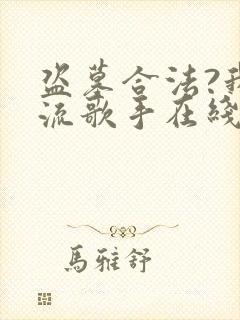 盗墓合法?我
流歌手在綫
馬雅舒